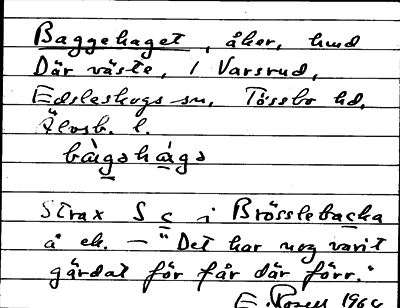 Baggehaget, åker, hmd
Där väste, i Varsrud,
Edsleskogs sn, Tössbo hd,
Älvsb. l.
bàgshágs
Strax S c i Brösslebacka
å ek. — "Det har nog varit
gärdat för får där förr."
E. Rosell 1966